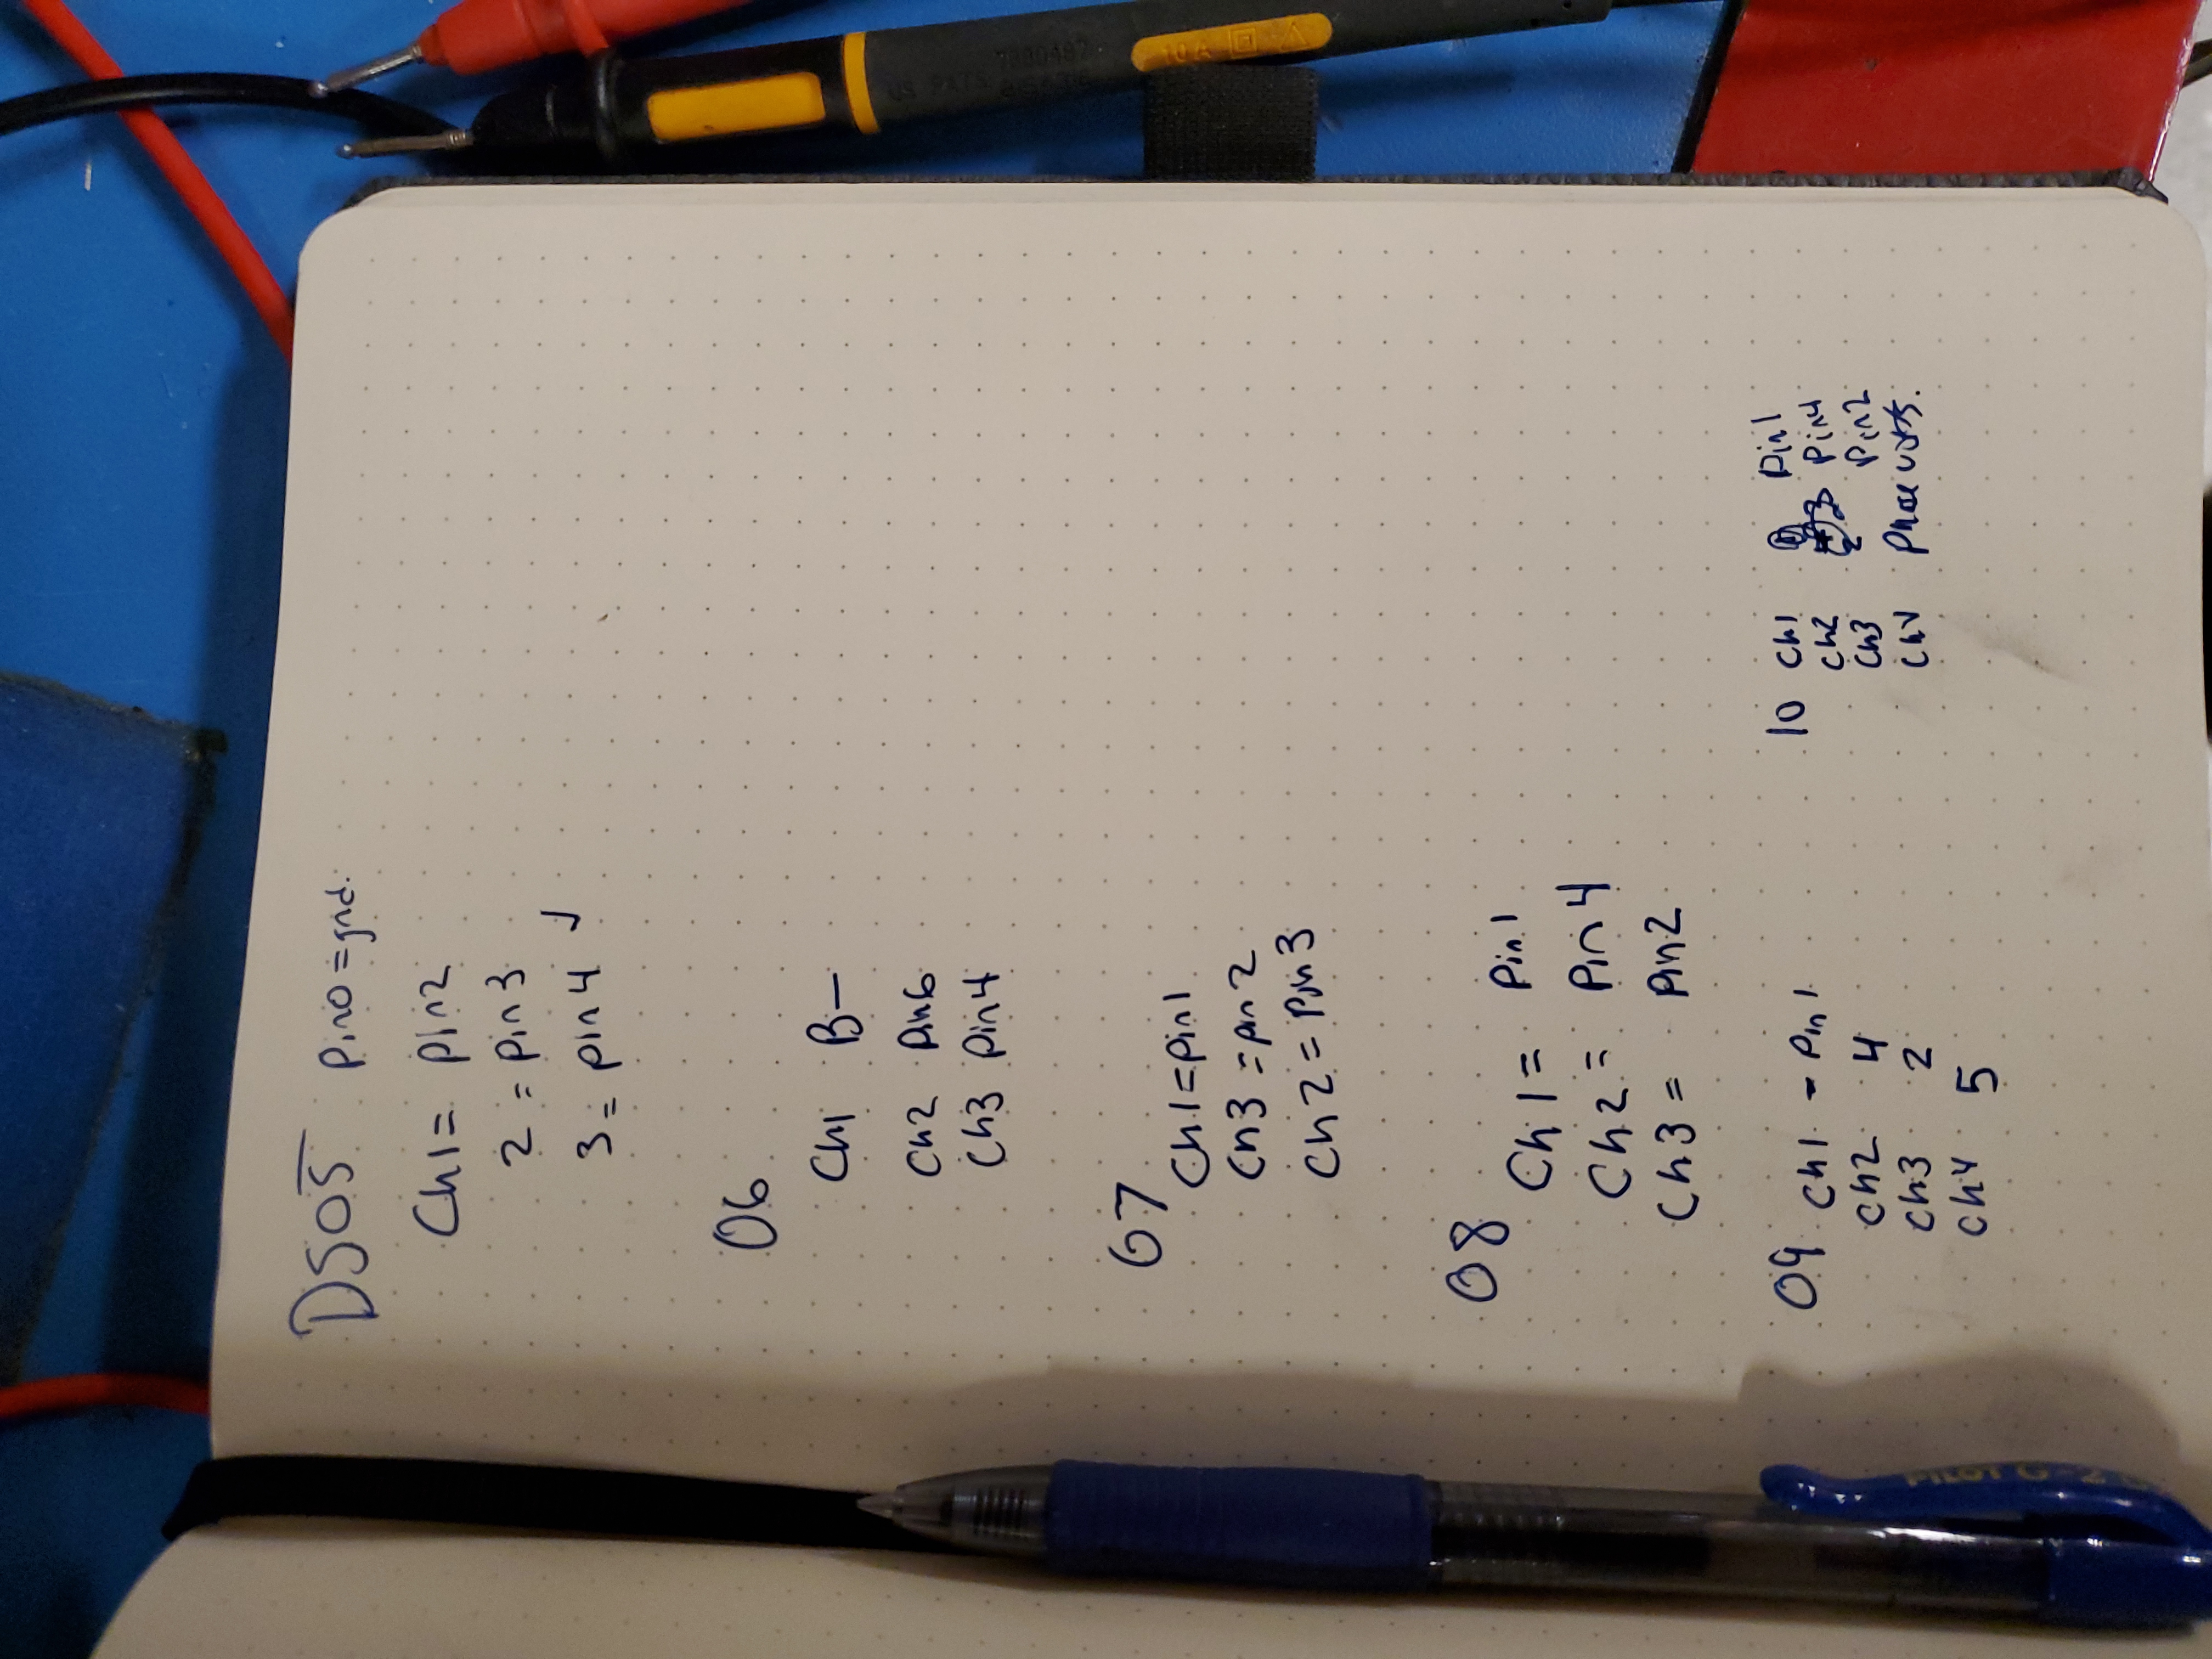 DS05 Pin0=gnd.
Ch1= Pin2
2 = Pin3
3 = pin4
06
Ch1 B-
Ch2 Pin6
Ch3 Pin4
07
Ch1=Pin1
Ch3 = pin2
Ch2 = Pin3
08
Ch1 = Pin1
Ch2 = Pin4
Ch3 = Pin2
09 Ch1 - Pin1
Ch2 4
Ch3 2
Ch4 5
10 Ch1 Pin1
Ch2 Pin4
Ch3 2 Pin2
Ch4 Phase volts.
10A
7800487
US PATS
PILOT G-2